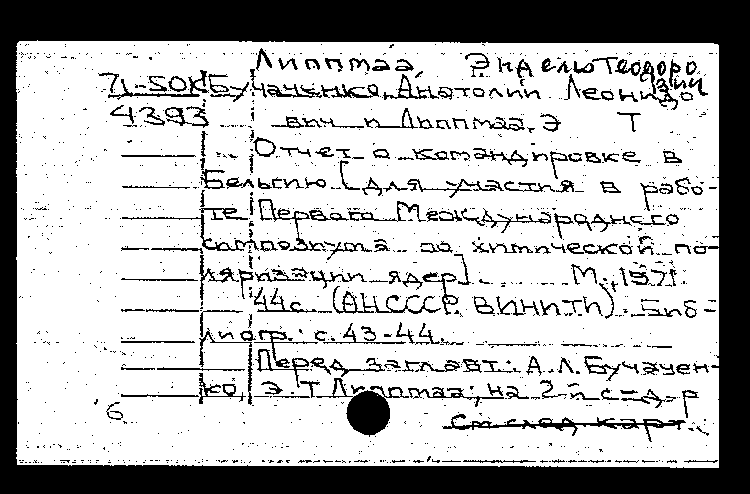 Липпмаа, Эндель Теодоро
вич
71-50К Бучаченко, Анатолий Леонидо
4393 вич и Липпмаа, Э Т
Отчет о командировке в
Бельгию [для участия в рабо-
те Первого Международного
симпозиума по химической по-
ляризации ядер]. М., 1971.
44с. (АНСССР. ВИНИТИ). Биб-
лиогр.: с. 43-44.
Перед загл. авт.: А.Л. Бучачен-
ко, Э.Т Липпмаа; на 2-й с
6 См след карт.